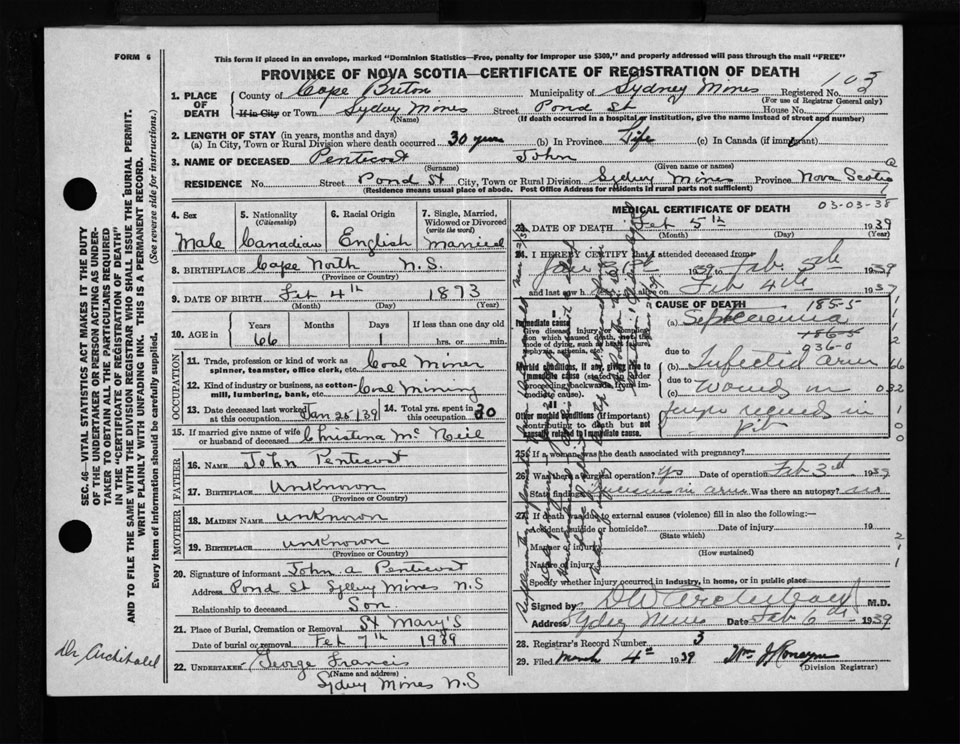 FORM 6
This form if placed in an envelope, marked "Dominion Statistics—Free, penalty for improper use $300," and properly addressed will pass through the mail "FREE"
PROVINCE OF NOVA SCOTIA—CERTIFICATE OF REGISTRATION OF DEATH
SEC. 46—VITAL STATISTICS ACT MAKES IT THE DUTY
OF THE UNDERTAKER OR PERSON ACTING AS UNDER-
TAKER TO OBTAIN ALL THE PARTICULARS REQUIRED
IN THE "CERTIFICATE OF REGISTRATION OF DEATH"
AND TO FILE THE SAME WITH THE DIVISION REGISTRAR WHO SHALL ISSUE THE BURIAL PERMIT.
WRITE PLAINLY WITH UNFADING INK. THIS IS A PERMANENT RECORD.
Every item of Information should be carefully supplied. (See reverse side for instructions.)
1. PLACE OF DEATH
County of Cape Briton Municipality of Sydney Mines Registered No. 103
(For use of Registrar General only)
If in City or Town Sydney Mines Street Pond St House No.
(Name) (If death occurred in a hospital or institution, give the name instead of street and number)
2. LENGTH OF STAY (in years, months and days)
(a) In City, Town or Rural Division where death occurred 30 years (b) In Province Life (c) In Canada (if immigrant)
3. NAME OF DECEASED Penticost John
(Surname) (Given name or names)
RESIDENCE No. Street Pond St City, Town or Rural Division Sydney Mines Province Nova Scotia
(Residence means usual place of abode. Post Office Address for residents in rural parts not sufficient)
4. Sex Male
5. Nationality (Citizenship) Canadian
6. Racial Origin English
7. Single, Married, Widowed or Divorced (write the word) Married
8. BIRTHPLACE Cape North N.S.
(Province or Country)
9. DATE OF BIRTH Feb 4th 1873
(Month) (Day) (Year)
10. AGE in Years Months Days If less than one day old
66 1 hrs. or min.
OCCUPATION
11. Trade, profession or kind of work as spinner, teamster, office clerk, etc. Coal Miner
12. Kind of industry or business, as cotton-mill, lumbering, bank, etc. Coal Mining
13. Date deceased last worked at this occupation Jan 25/39 14. Total yrs. spent in this occupation 30
15. If married give name of wife or husband of deceased Christina Mc Neil
FATHER
16. NAME John Penticost
17. BIRTHPLACE Unknown
(Province or Country)
MOTHER
18. MAIDEN NAME unknown
19. BIRTHPLACE unknown
(Province or Country)
20. Signature of informant John A Penticost
Address Pond St Sydney Mines N.S
Relationship to deceased Son
21. Place of Burial, Cremation or Removal St Mary's
Date of burial or removal Feb 7th 1939
22. UNDERTAKER George Francis
(Name and address)
Sydney Mines N.S
Dr Archibald
MEDICAL CERTIFICATE OF DEATH 03-03-38
23. DATE OF DEATH Feb 5th 1939
(Month) (Day) (Year)
24. I HEREBY CERTIFY that I attended deceased from
1939 to Feb. 5th 1939
and last saw h alive on Feb 4th 1939
CAUSE OF DEATH 185-5
I
Immediate cause (a) Septicaemia
Give disease, injury or complication which caused death, not the mode of dying, such as heart failure, asphyxia, asthenia, etc.
186-5
36-0
due to
(b) Infected arm
Morbid conditions, if any, giving rise to immediate cause (stated in order proceeding backwards from immediate cause).
due to
(c) Wound in
II
Other morbid conditions (if important) contributing to death but not causally related to immediate cause.
received in
pit
25. If a woman, was the death associated with pregnancy?
26. Was there a surgical operation? Yes Date of operation Feb 3rd 1939
State findings arm Was there an autopsy? no
27. If death was due to external causes (violence) fill in also the following:—
Accident, suicide or homicide? Date of injury 19
(State which)
Manner of injury
(How sustained)
Nature of injury
Specify whether injury occurred in industry, in home, or in public place
Signed by D W Archibald M.D.
Address Sydney Mines Date Feb 6th 1939
28. Registrar's Record Number 3
29. Filed March 4th 1939
(Division Registrar)